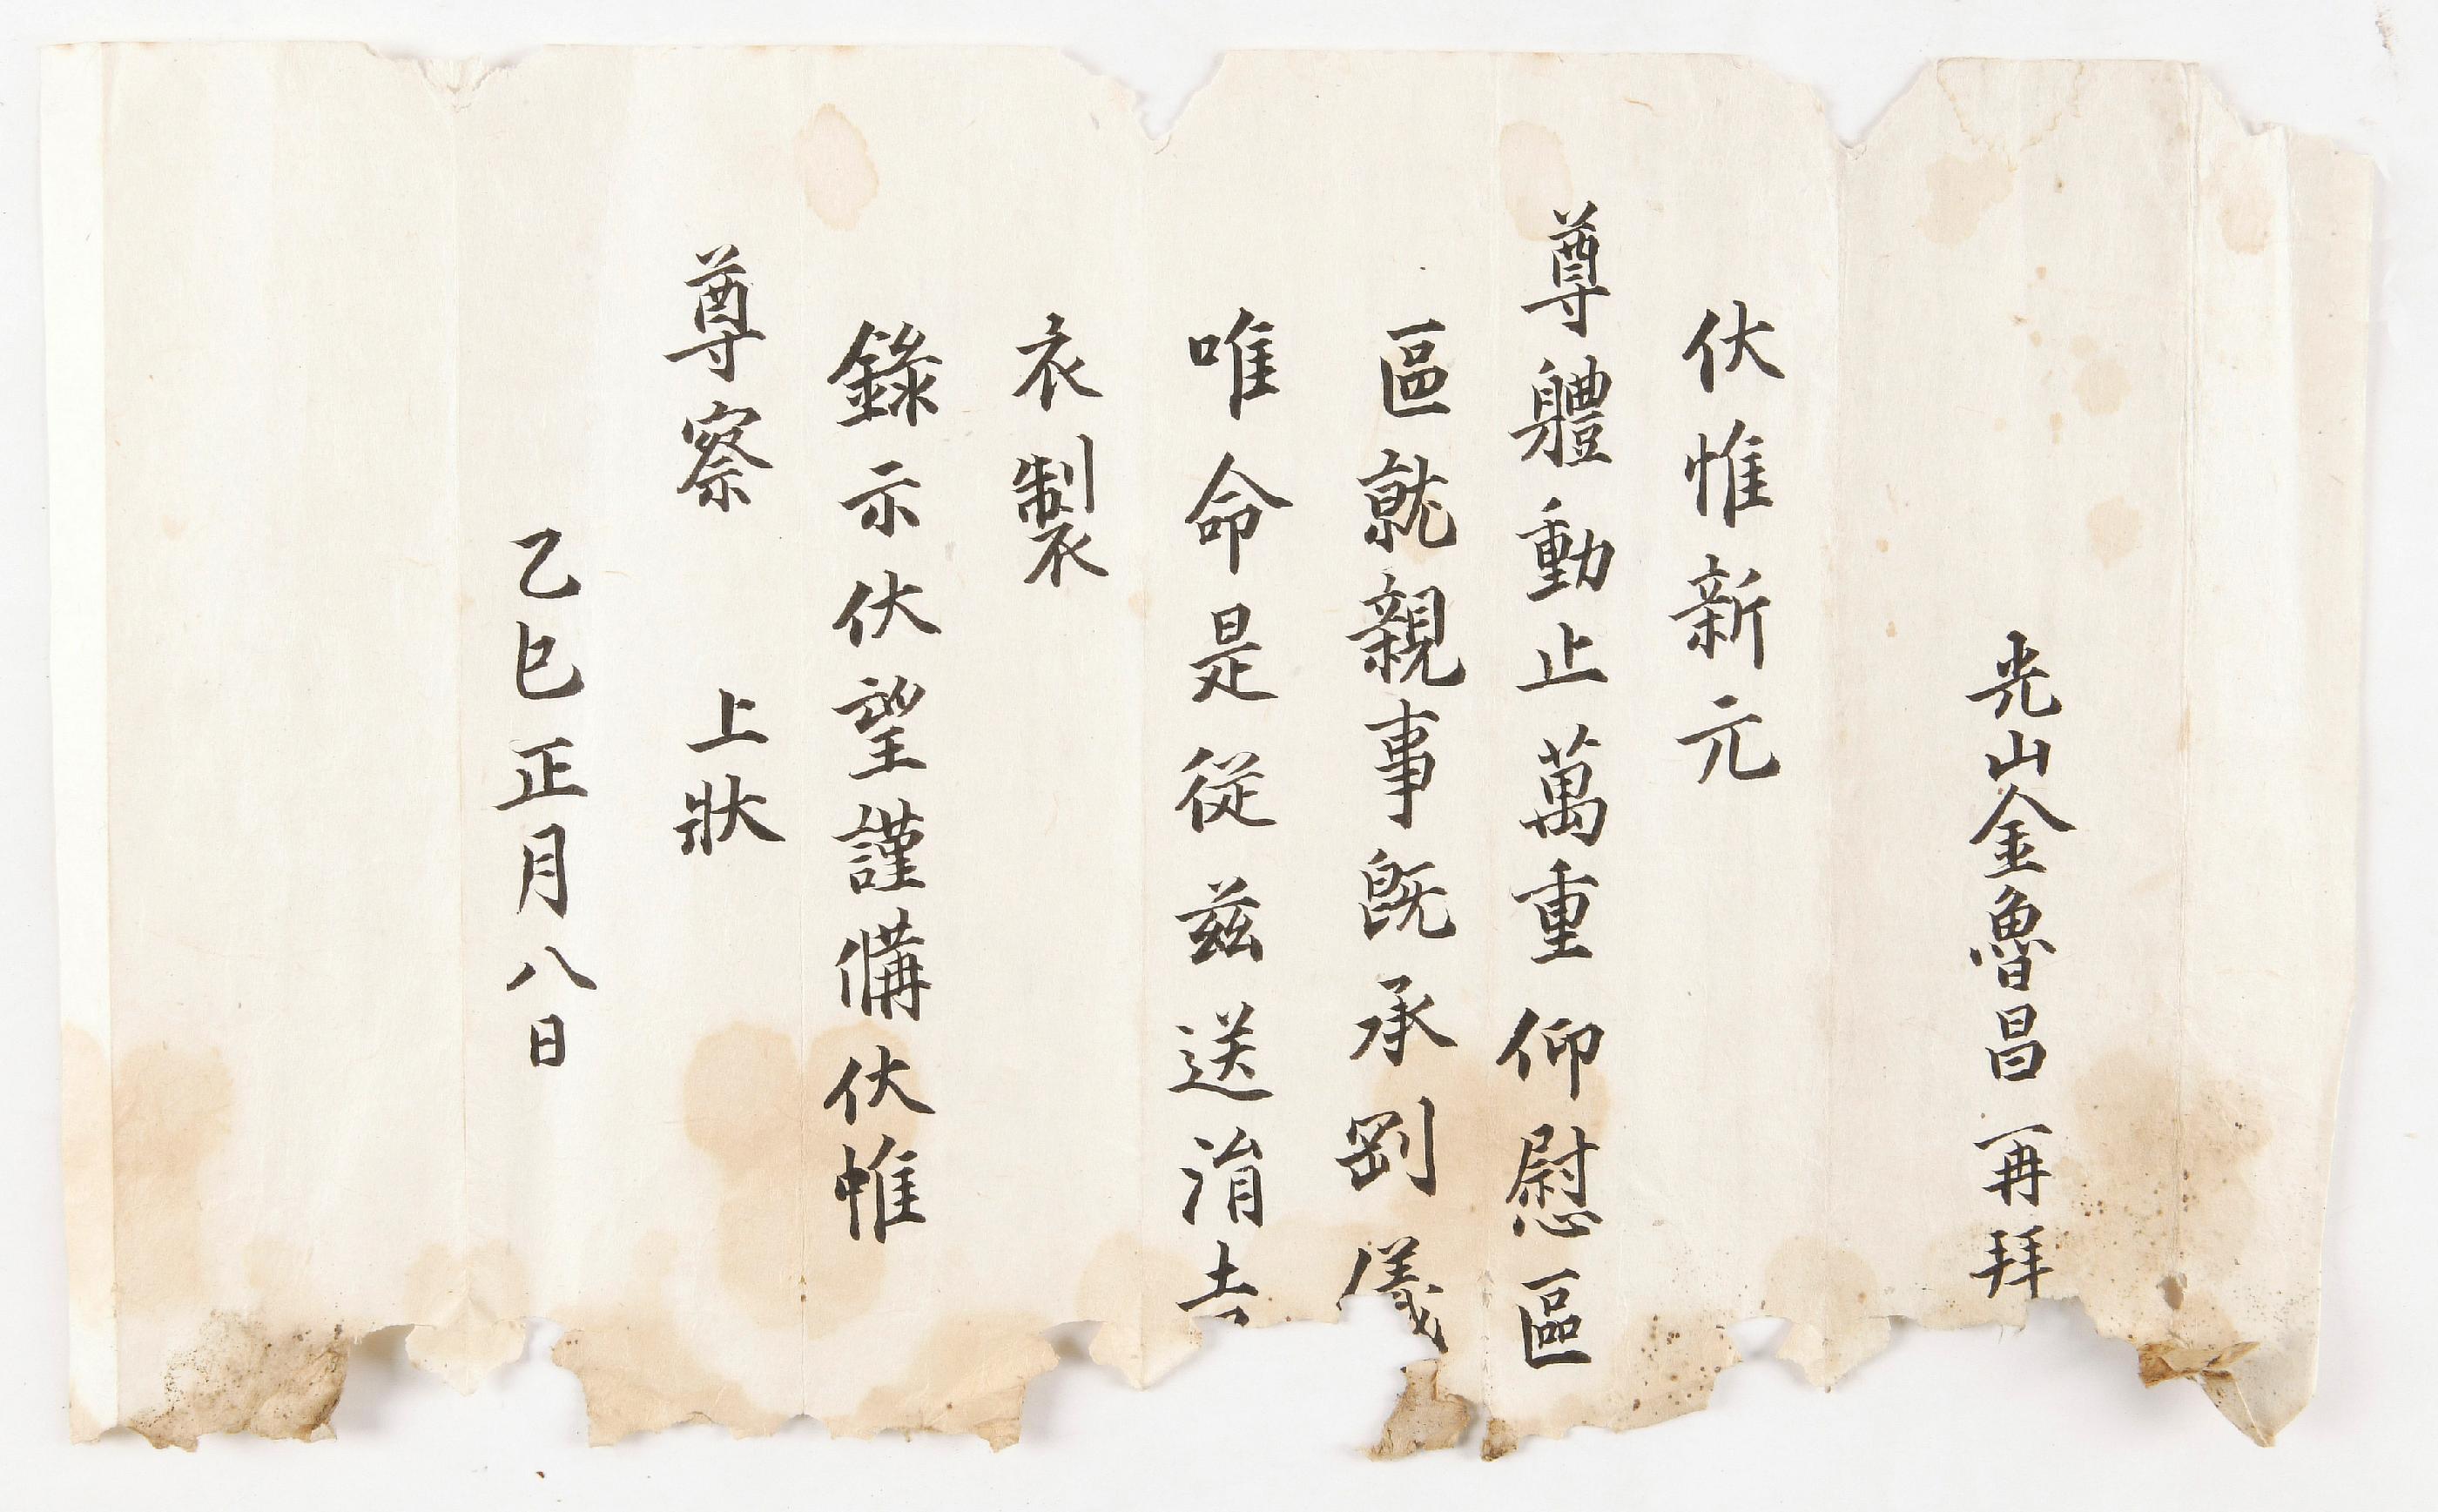 光山金魯昌再拜
伏惟新元
尊軆動止萬重仰慰區
區就親事旣承剛儀
唯命是從茲送涓吉
衣製
錄示伏望謹備伏惟
尊察 上狀
乙巳正月八日